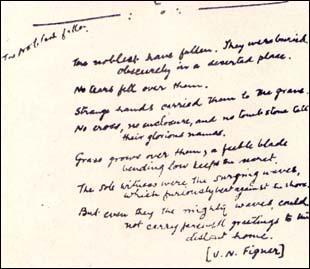 The noblest fallen.
The noblest have fallen. They were buried
obscurely in a deserted place.
No tears fell over them.
Strange hands carried them to the grave.
No cross, no enclosure, and no tomb stone tell
their glorious names.
Grass grows over them, a feeble blade
bending low keeps the secret.
The sole witness were the surging waves,
which furiously beat against the shore.
But even they the mighty waves, could
not carry farewell greetings to the
distant home.
[V. N. Figner]